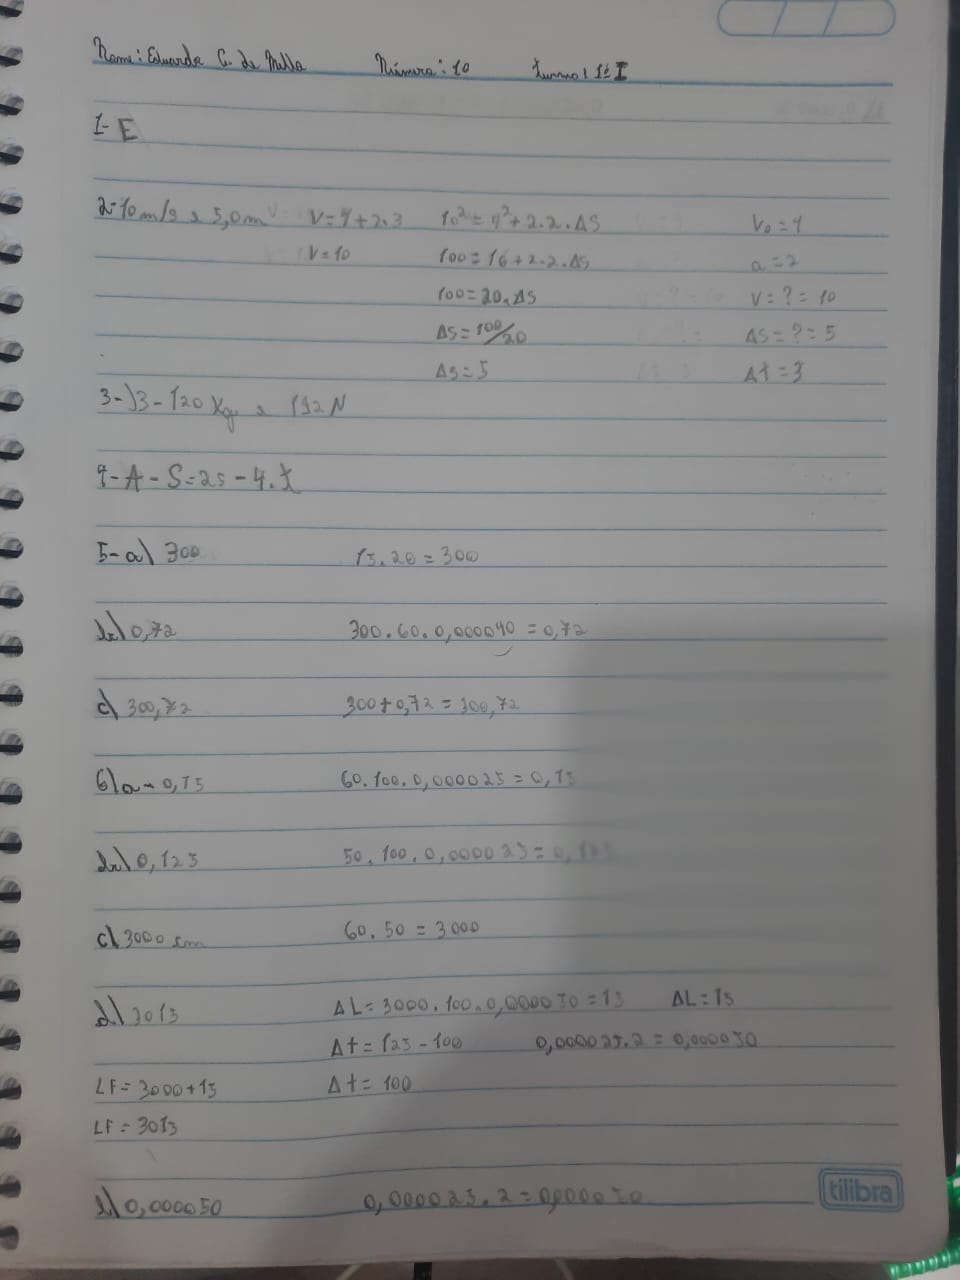 Nome: Eduarda C. de Mello Número: 10 Turma: 1º I
1- E
2- 10 m/s e 5,0m V = 4 + 2.3 10² = 4² + 2.2.ΔS V₀ = 4
V = 10 100 = 16 + 2.2.ΔS a = 2
100 = 20.ΔS V = ? = 10
ΔS = 100/20 ΔS = ? = 5
ΔS = 5 Δt = 3
3- B - 120 Kg e 192 N
4- A - S = 25 - 4.t
5- a) 300 15.20 = 300
b) 0,72 300.60.0,000040 = 0,72
c) 300,72 300 + 0,72 = 300,72
6) a - 0,15 60.100.0,000025 = 0,15
b) 0,125 50.100.0,000025 = 0,125
c) 3000 cm 60.50 = 3000
d) 3015 ΔL = 3000.100.0,000050 = 15 ΔL = 15
Δt = 125 - 100 0,000025.2 = 0,000050
LF = 3000 + 15 Δt = 100
LF = 3015
e) 0,000050 0,000025.2 = 0,000050
tilibra